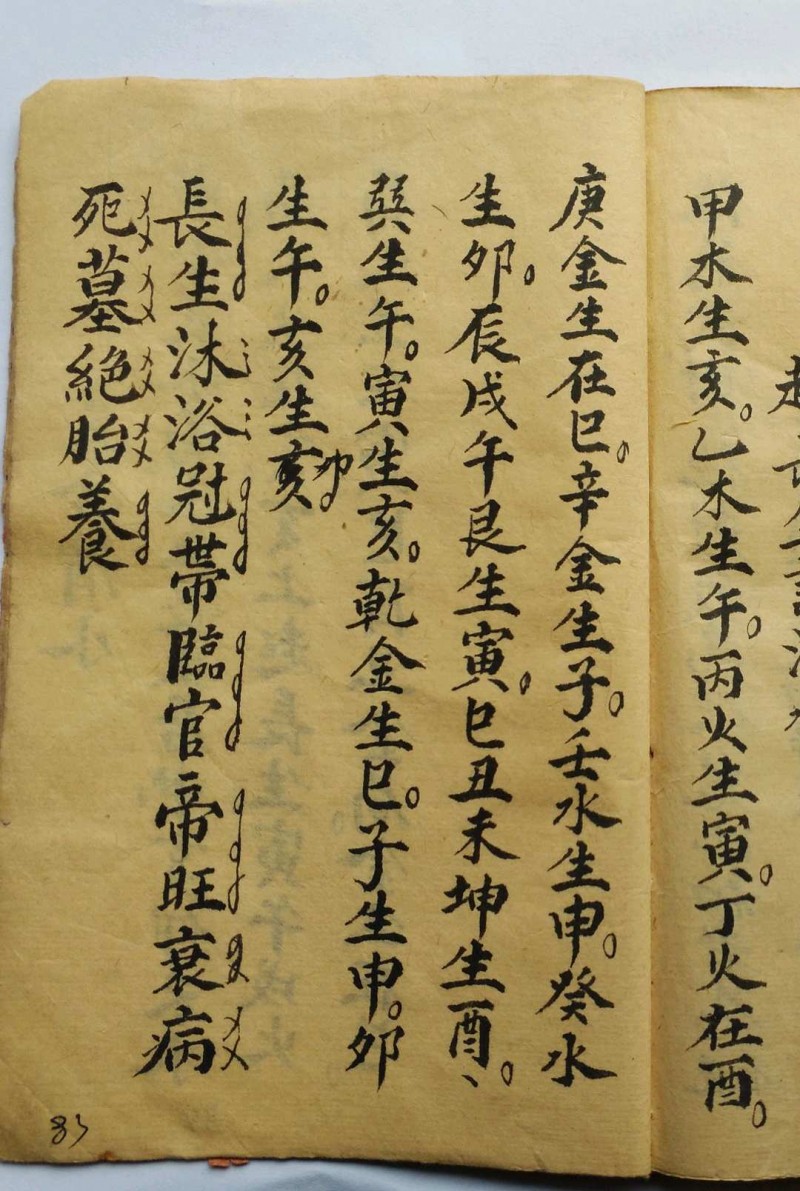 起長生訣
甲木生亥。乙木生午。丙火生寅。丁火在酉。
庚金生在巳。辛金生子。壬水生申。癸水
生夘。辰戌午艮生寅。巳丑未坤生酉、。
巽生午。寅生亥。乾金生巳。子生申。夘
生午。亥生亥。夘
長生沐浴冠帶臨官帝旺衰病
死墓絕胎養
83